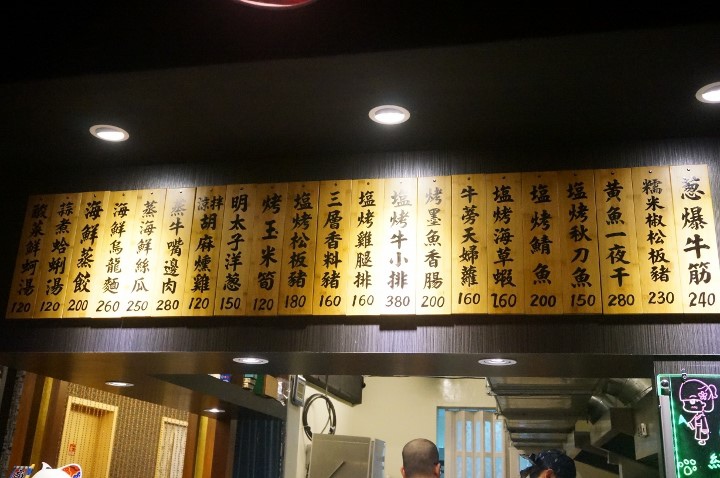 蔥爆牛筋 240
糯米椒松板豬 230
黃魚一夜干 280
塩烤秋刀魚 150
塩烤鯖魚 200
塩烤海草蝦 260
牛蒡天婦蘿 160
烤墨魚香腸 200
塩烤牛小排 380
塩烤雞腿排 160
三層香料豬 160
塩烤松板豬 180
烤玉米筍 120
明太子洋蔥 150
涼拌胡麻燻雞 120
蒸牛嘴邊肉 280
蒸海鮮絲瓜 250
海鮮烏龍麵 260
海鮮蒸餃 200
蒜煮蛤蜊湯 120
酸菜鮮蚵湯 120